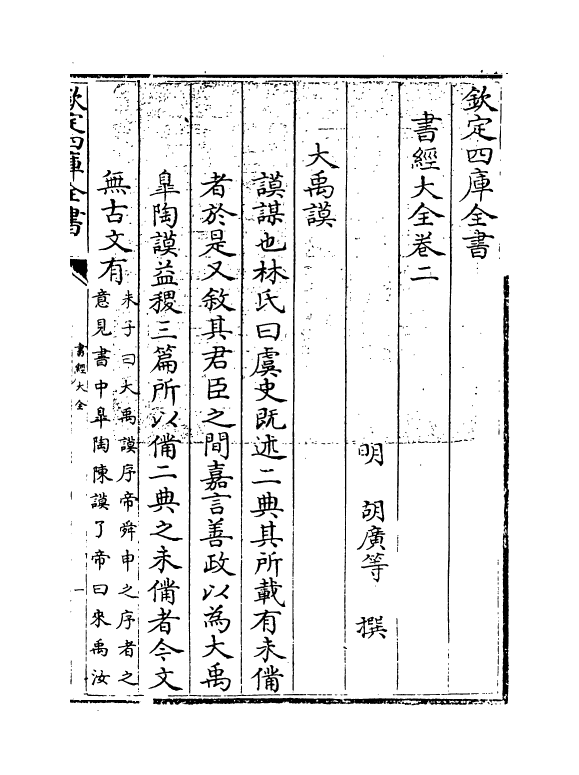 欽定四庫全書
書經大全卷二
明 胡廣等 撰
大禹謨
謨謀也林氏曰虞史既述二典其所載有未備
者於是又敘其君臣之間嘉言善政以為大禹
皐陶謨益稷三篇所以備二典之未備者今文
無古文有
朱子曰大禹謨序帝舜申之序者之
意見書中皐陶陳謨了帝曰來禹汝
欽定四庫全書
書經大全
一